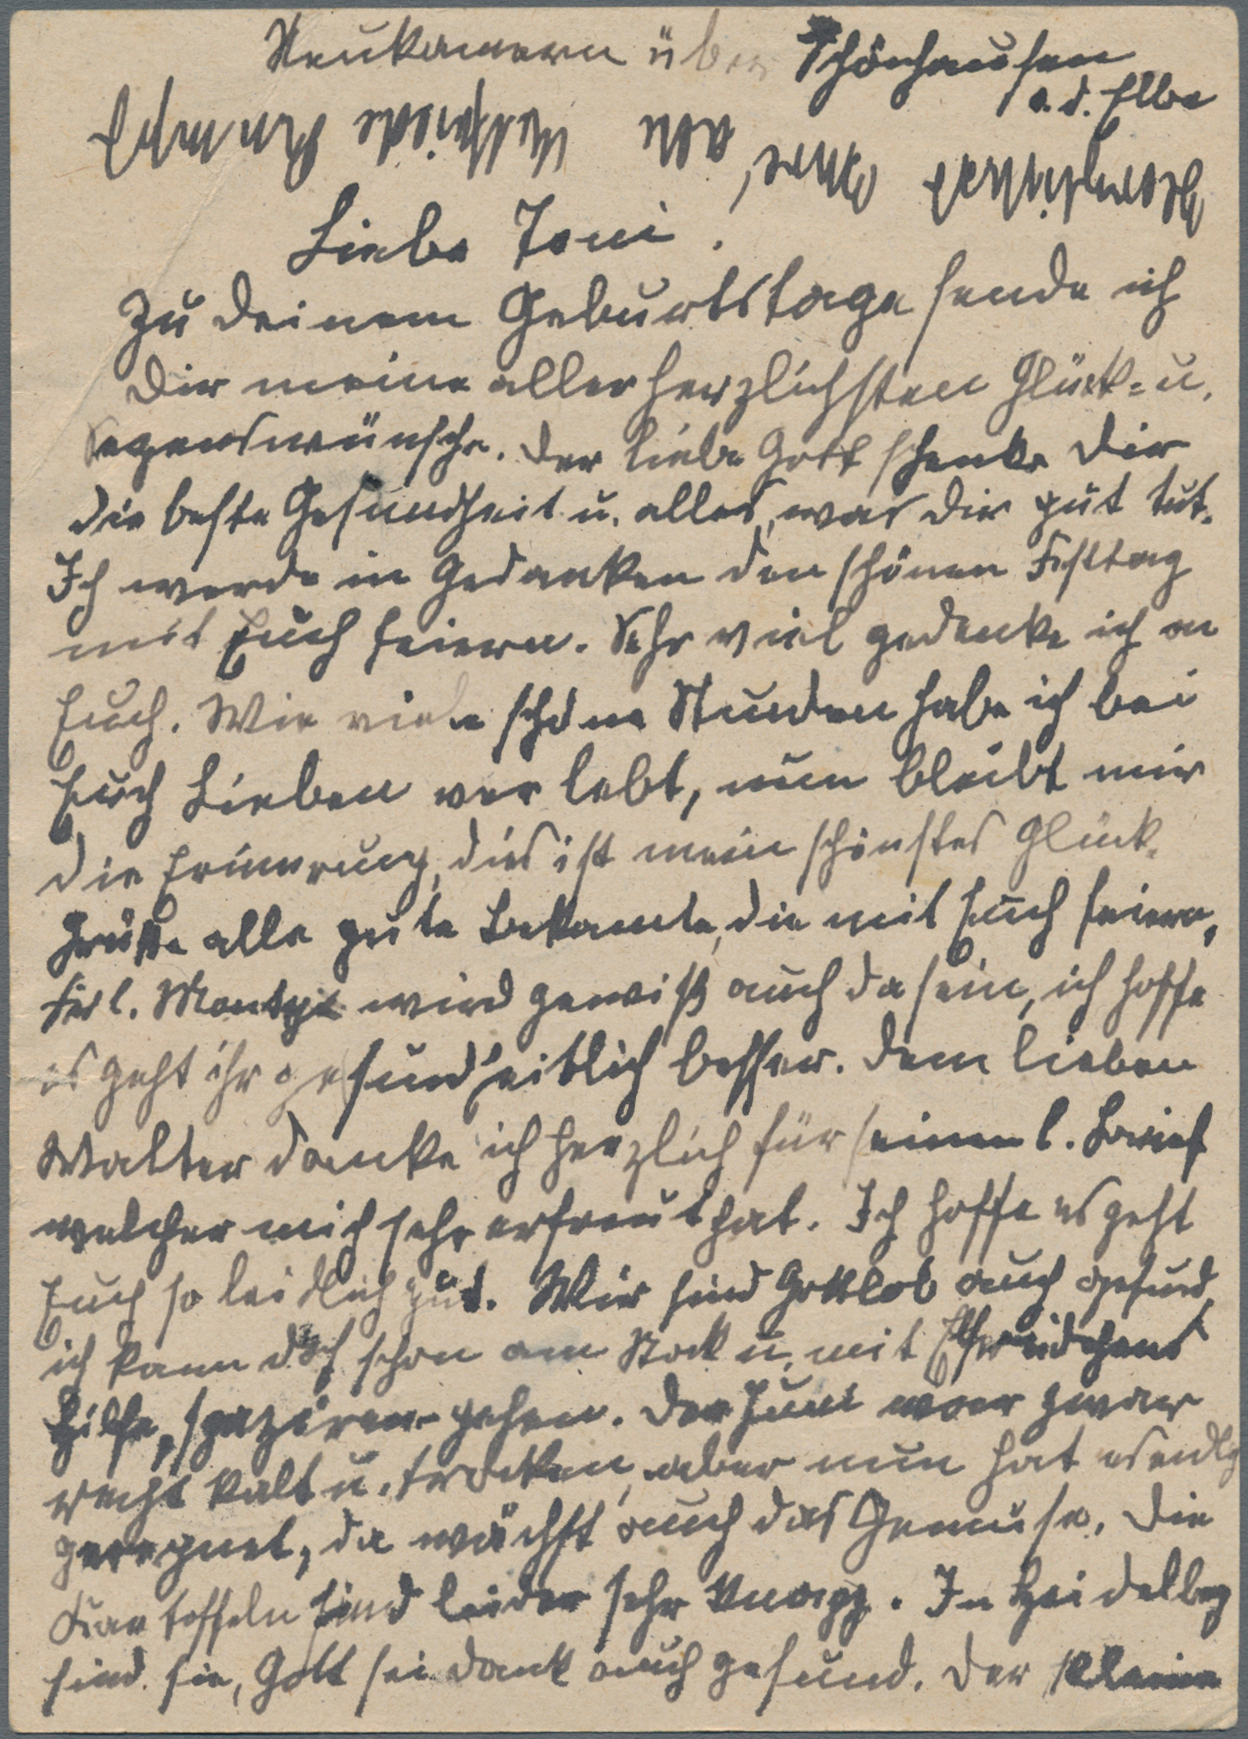 Neukamern über Schönhausen
a. d. Elbe
Herzlichst Eure, alte
Liebe Toni!
Zu deinem Geburtstage sende ich
Dir meine allerherzlichsten Glück= u.
Segenswünsche. Der liebe Gott schenke Dir
die beste Gesundheit u. alles, was Dir gut tut.
Ich werde in Gedanken den schönen Festtag
mit Euch feiern. Sehr viel gedenke ich an
Euch. Wie viele schöne Stunden habe ich bei
Euch Lieben verlebt, nun bleibt mir
die Erinnerung, dies ist mein schönstes Glück.
Grüße alle gute Bekannte, die mit Euch feiern,
Frl. wird gewiß auch da sein, ich hoffe
es geht ihr gesundheitlich besser. Dem lieben
Walter danke ich herzlich für seinen l. Brief
welcher mich sehr erfreut hat. Ich hoffe es geht
Euch so leidlich gut. Wir sind Gottlob auch gesund,
ich kann doch schon am Stock u. mit Elfriedchens
Hilfe, spaziren gehen. Der Juni war zwar
recht kalt u. trocken, aber nun hat es endlg
geregnet, da wächst auch das Gemüse. Die
Kartoffeln sind leider sehr knapp. In Heidelbg
sind sie, Gott sei dank auch gesund. Der kleine